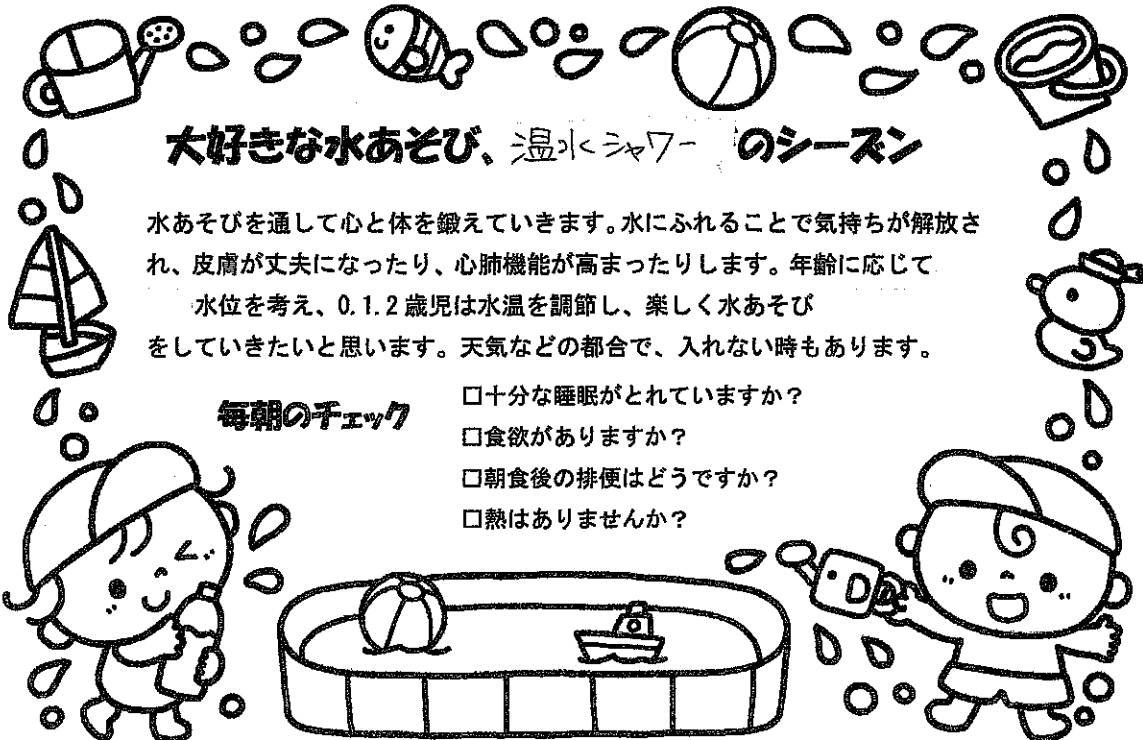 大好きな水あそび、温水シャワーのシーズン
水あそびを通して心と体を鍛えていきます。水にふれることで気持ちが解放さ
れ、皮膚が丈夫になったり、心肺機能が高まったりします。年齢に応じて
水位を考え、0.1.2歳児は水温を調節し、楽しく水あそび
をしていきたいと思います。天気などの都合で、入れない時もあります。
毎朝のチェック
□十分な睡眠がとれていますか？
□食欲がありますか？
□朝食後の排便はどうですか？
□熱はありませんか？